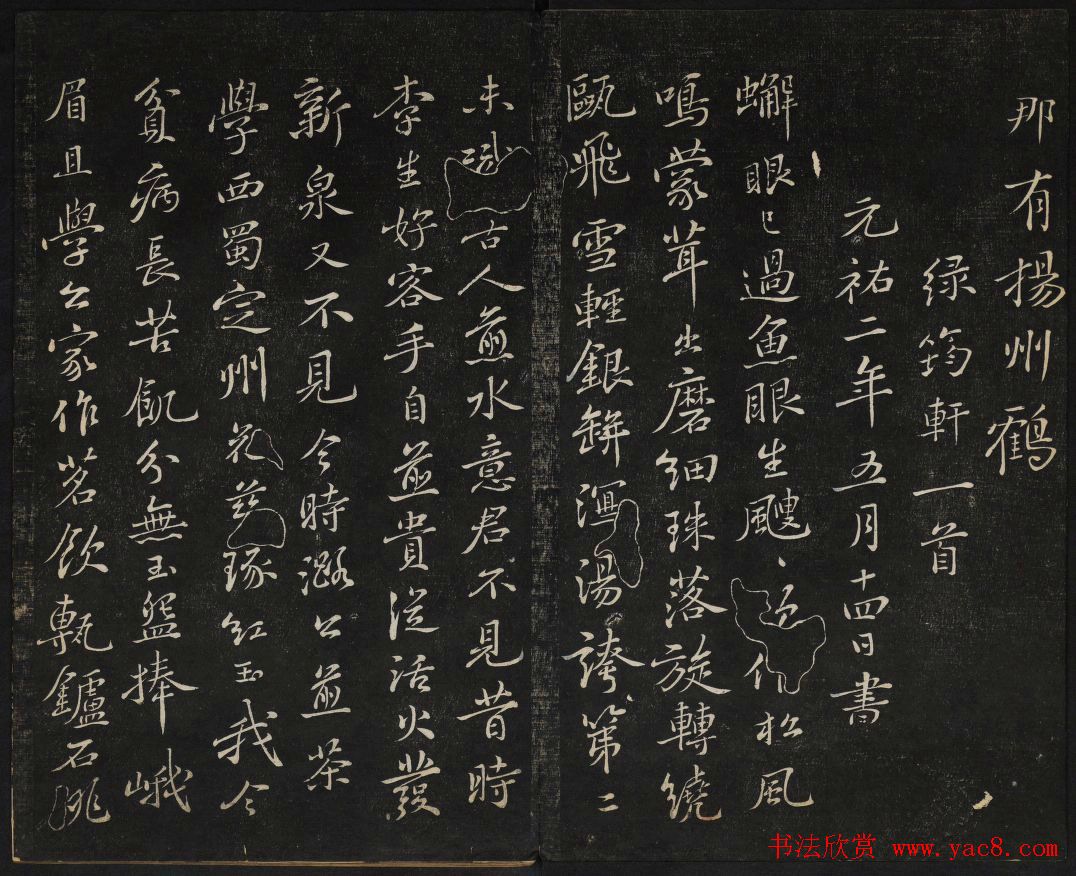 那有揚州鶴
绿筠軒一首
元祐二年五月十四日書
蠏眼已過魚眼生颼〻欲作松風
鳴蒙茸出磨細珠落旋轉繞
甌飛雪輕銀缾瀉湯誇第二
未識古人煎水意君不見昔時
李生好客手自煎貴從活火發
新泉又不見今時潞公煎茶
學西蜀定州花瓷琢紅玉我今
貧病長苦飢分無玉盌捧峨
眉且學公家作茗飲塼鑪石銚
书法欣赏 www.yac8.com